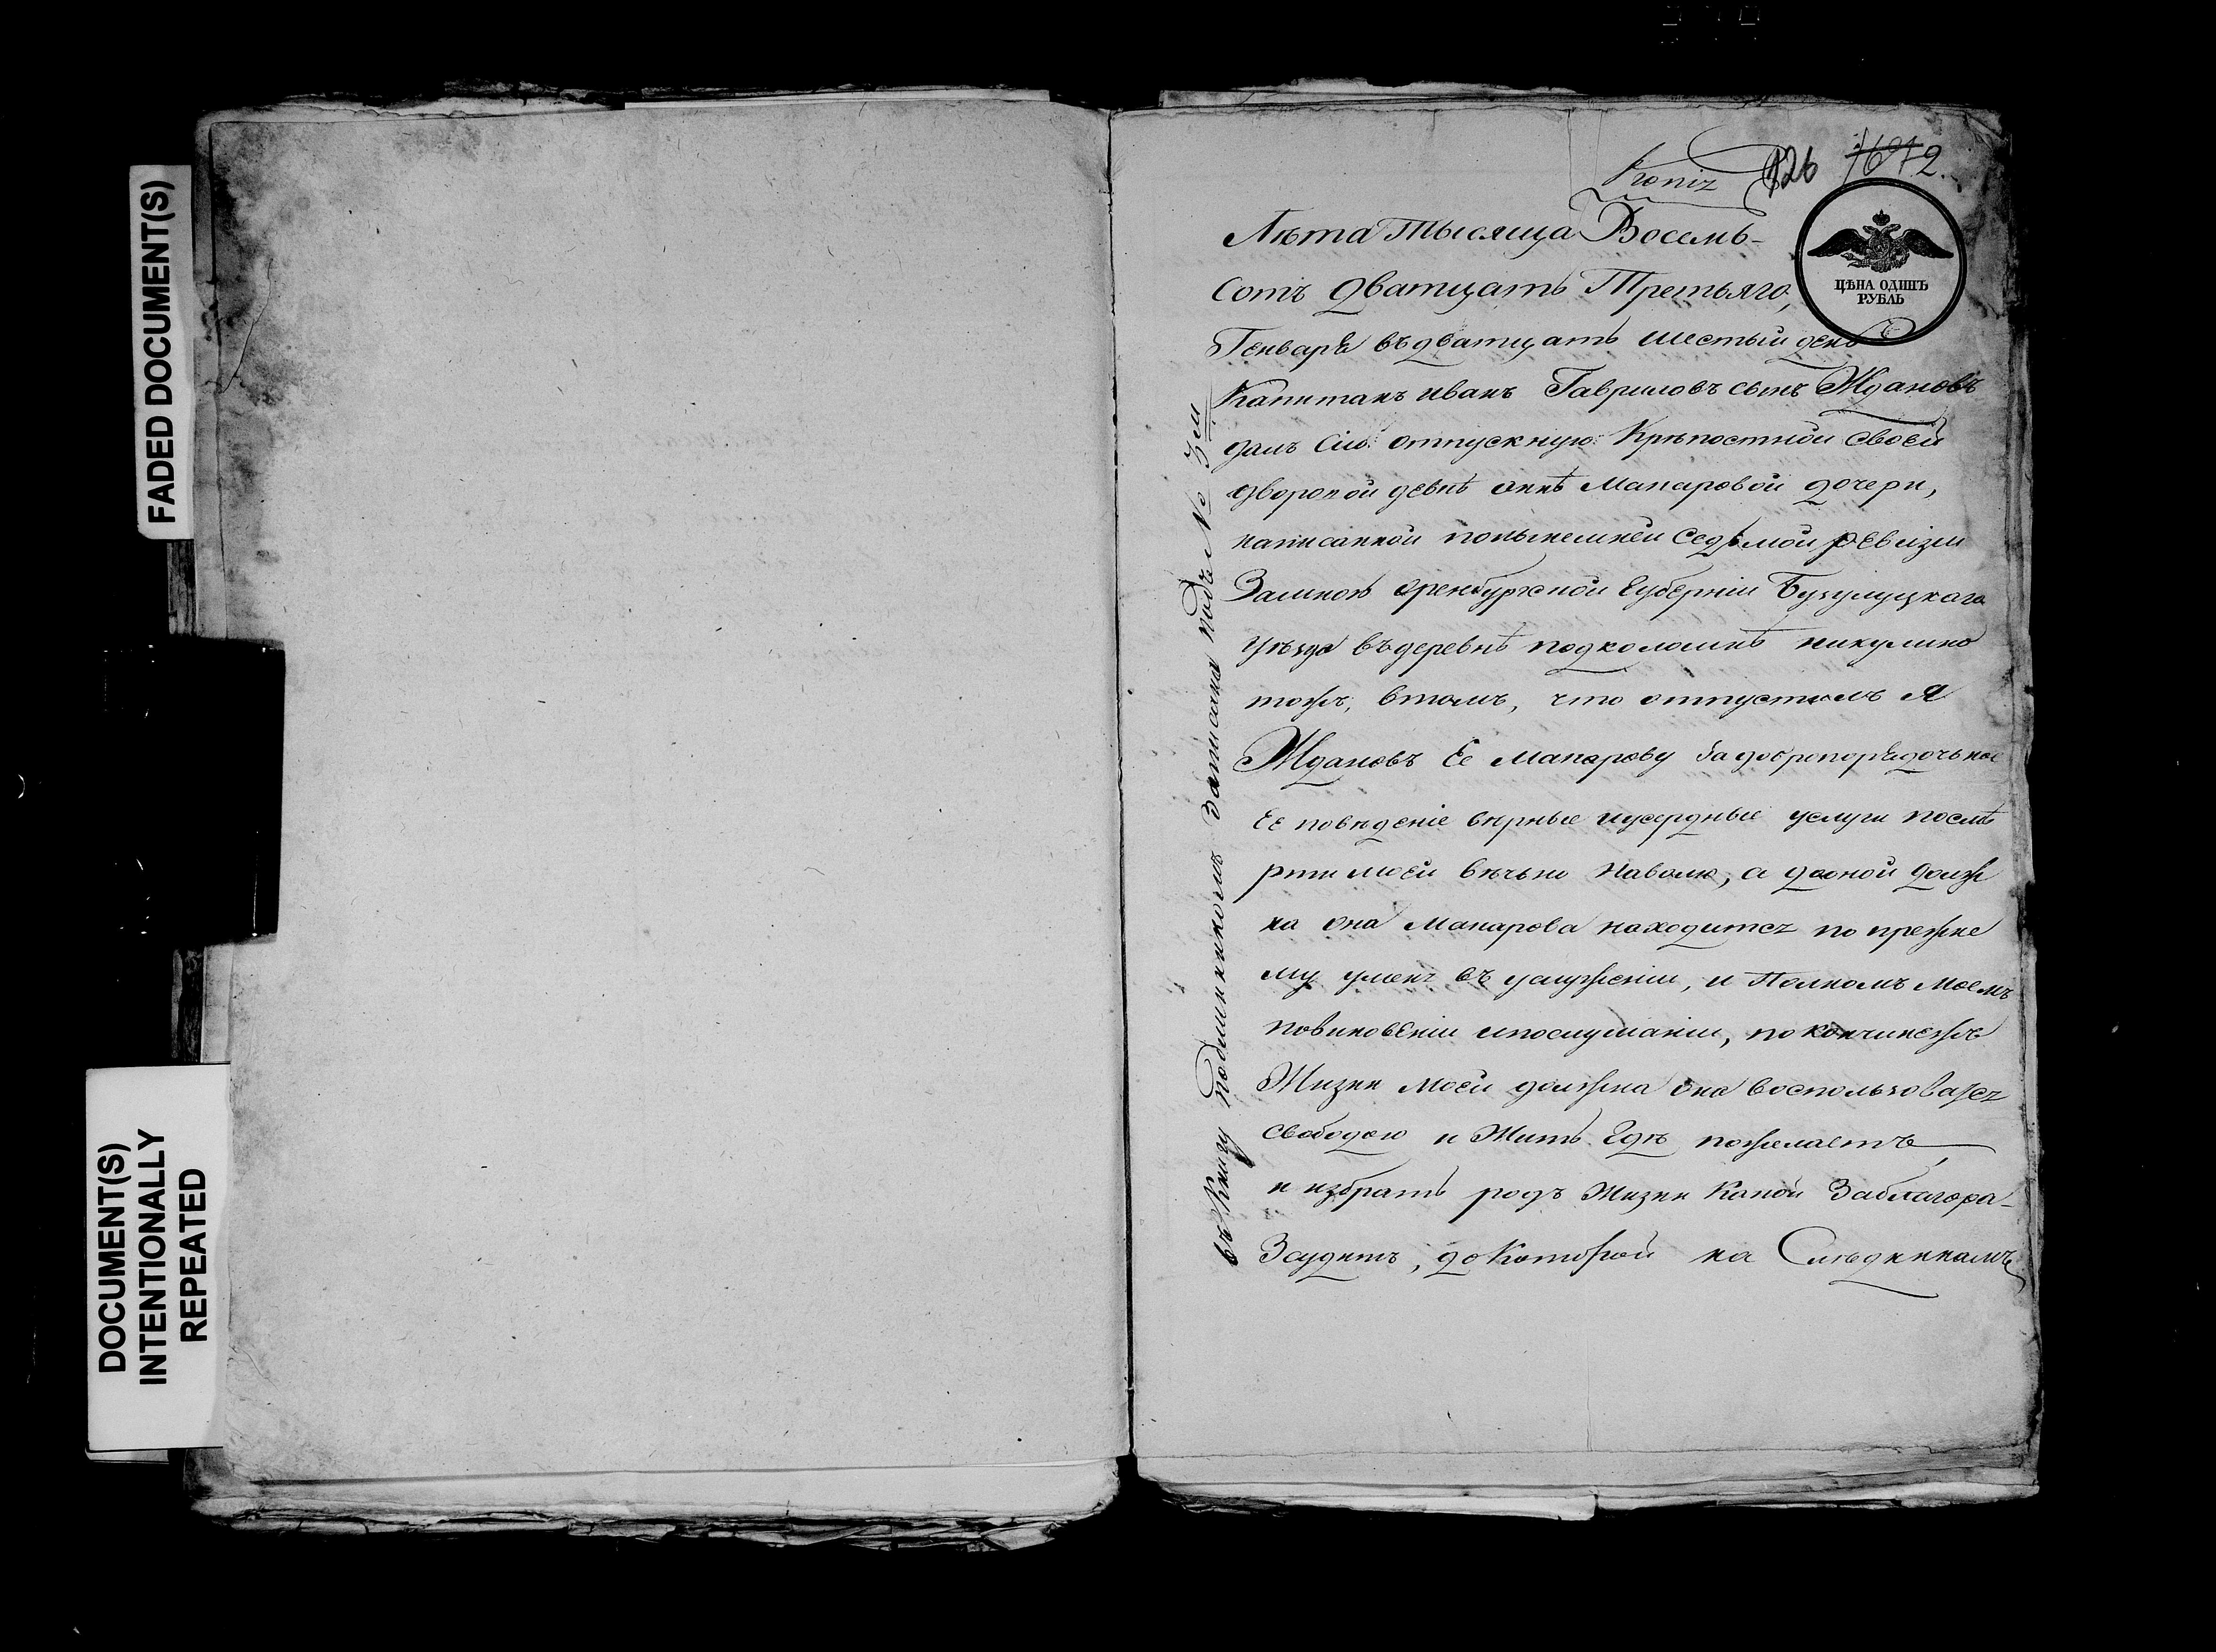 FADED DOCUMENT(S)
DOCUMENT(S)
INTENTIONALLY
REPEATED
Копія 126
ЦѢНА ОДИНЪ
РУБЛЬ
Лѣта Тысяща Восемь-
сотъ дватцать Третьяго,
Генваря въ дватцать шестый день
Капитанъ иванъ Гавриловъ сынъ Ждановъ
далъ сію отпускную Крѣпостной своей
дворовой девкѣ аннѣ Макаровой дочери,
написанной понынешней седьмой ревизіи
Замною оренбургской губерніи Бузулуцкаго
уѣзда въ деревнѣ подколошнѣ никулино
тожъ, втомъ, что отпустилъ я
Ждановъ Ее Макарову за добропорядочьное
Ее поведеніе верные иусердные услуги послѣ
рти моей вечьно наволю, а до оной долж
на она Макарова находитса по прежне
му уменя въ услуженіи, и Полномъ моемъ
повиновеніи ипослушаніи, по кончинежъ
Жизни моей должна она воспользоватса
свободою и Жить гдѣ пожелаетъ
и избрать родъ Жизни Какой Заблагора-
Зсудитъ, до которой на Слѣдникамъ
въ Книгу подлинникомъ записана подъ № 3м